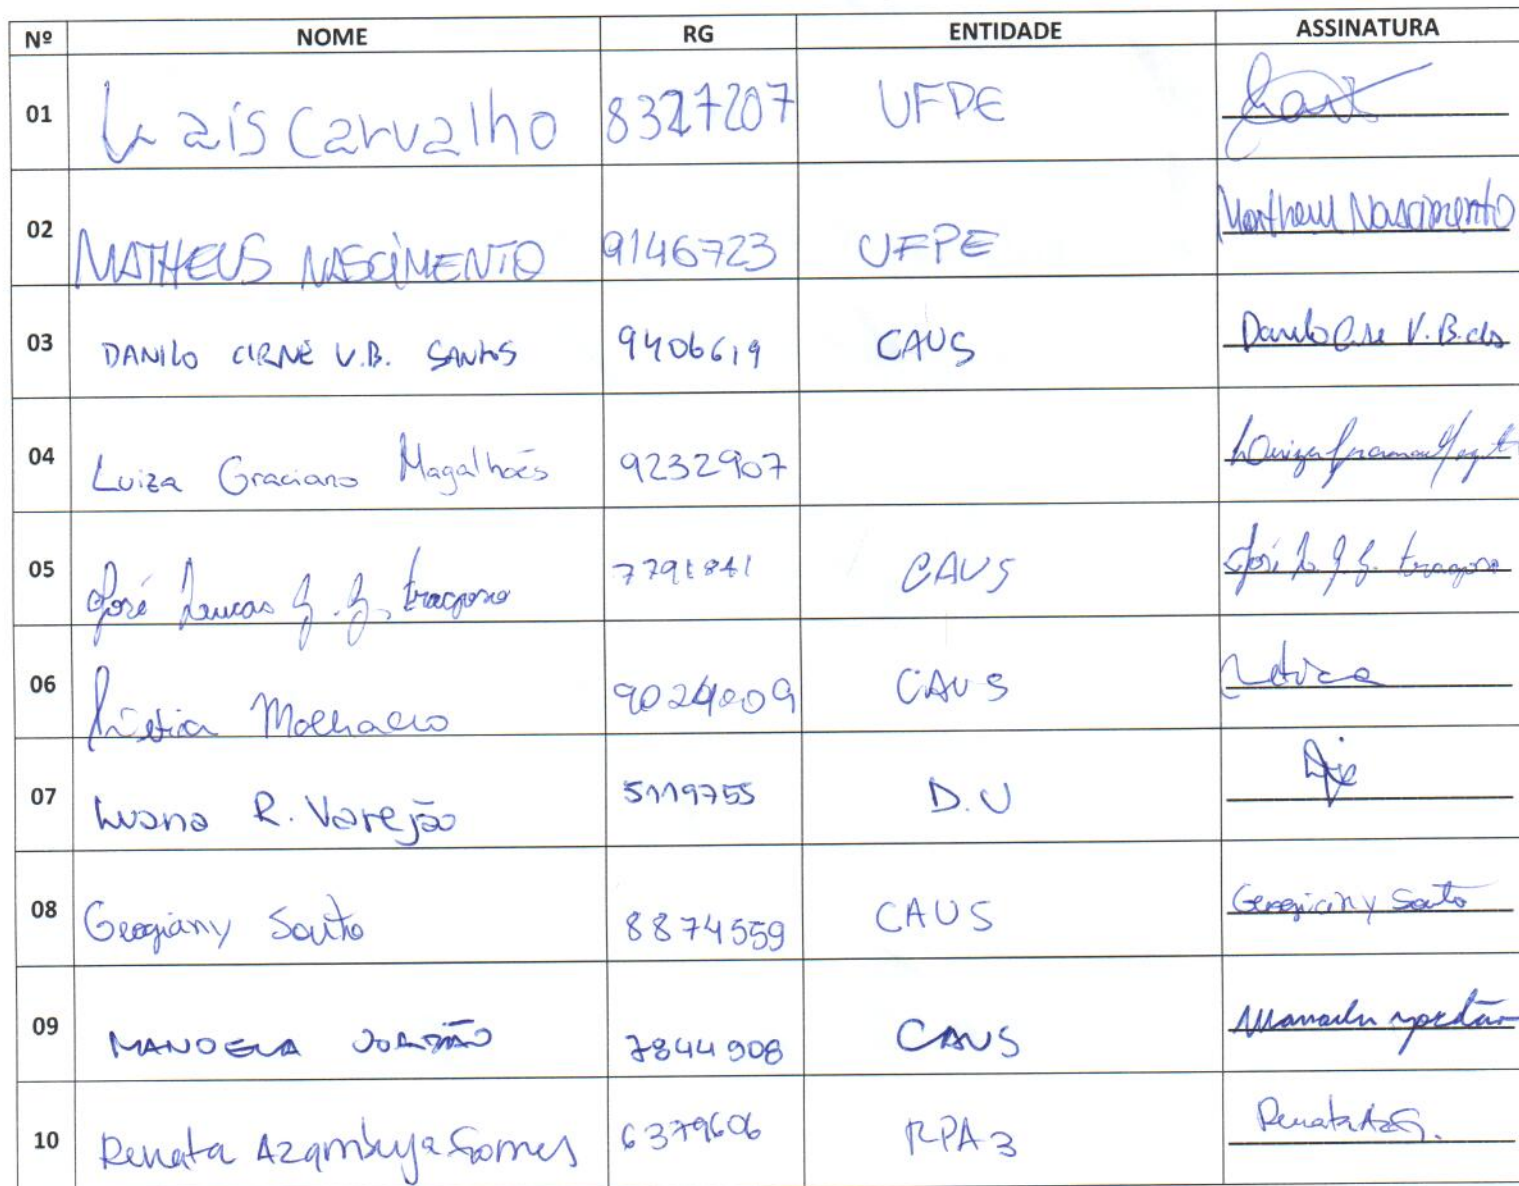 Nº NOME RG ENTIDADE ASSINATURA
01 Lais Carvalho 8327207 UFPE
02 MATHEUS NASCIMENTO 9146723 UFPE Matheus Nascimento
03 DANILO CIRNE V.B. SANTOS 9406619 CAUS Danilo Cirne V.B. dos
04 Luiza Graciano Magalhães 9232907
05 José Lucas G. G. Fragoso 7791841 CAUS José L. G. G. Fragoso
06 Letícia Machado CAUS Letícia
07 Luana R. Varejão 5119755 D.U
08 Geogiany Souto 8874559 CAUS Geogiany Souto
09 MANOELA JORDÃO 7844908 CAUS Manoela Jordão
10 Renata Azambuja Gomes 6379606 RPA3 Renata Az G.